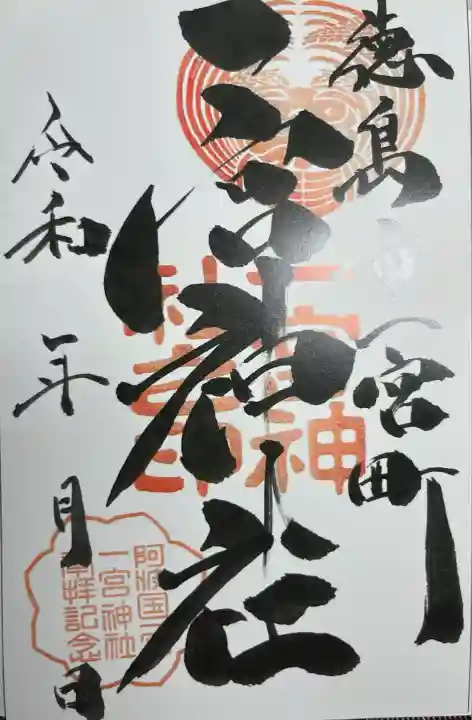 徳島市一宮町
一宮神社
令和 年 月 日
一宮神
社之印
阿波国一
一宮神社
参拝記念